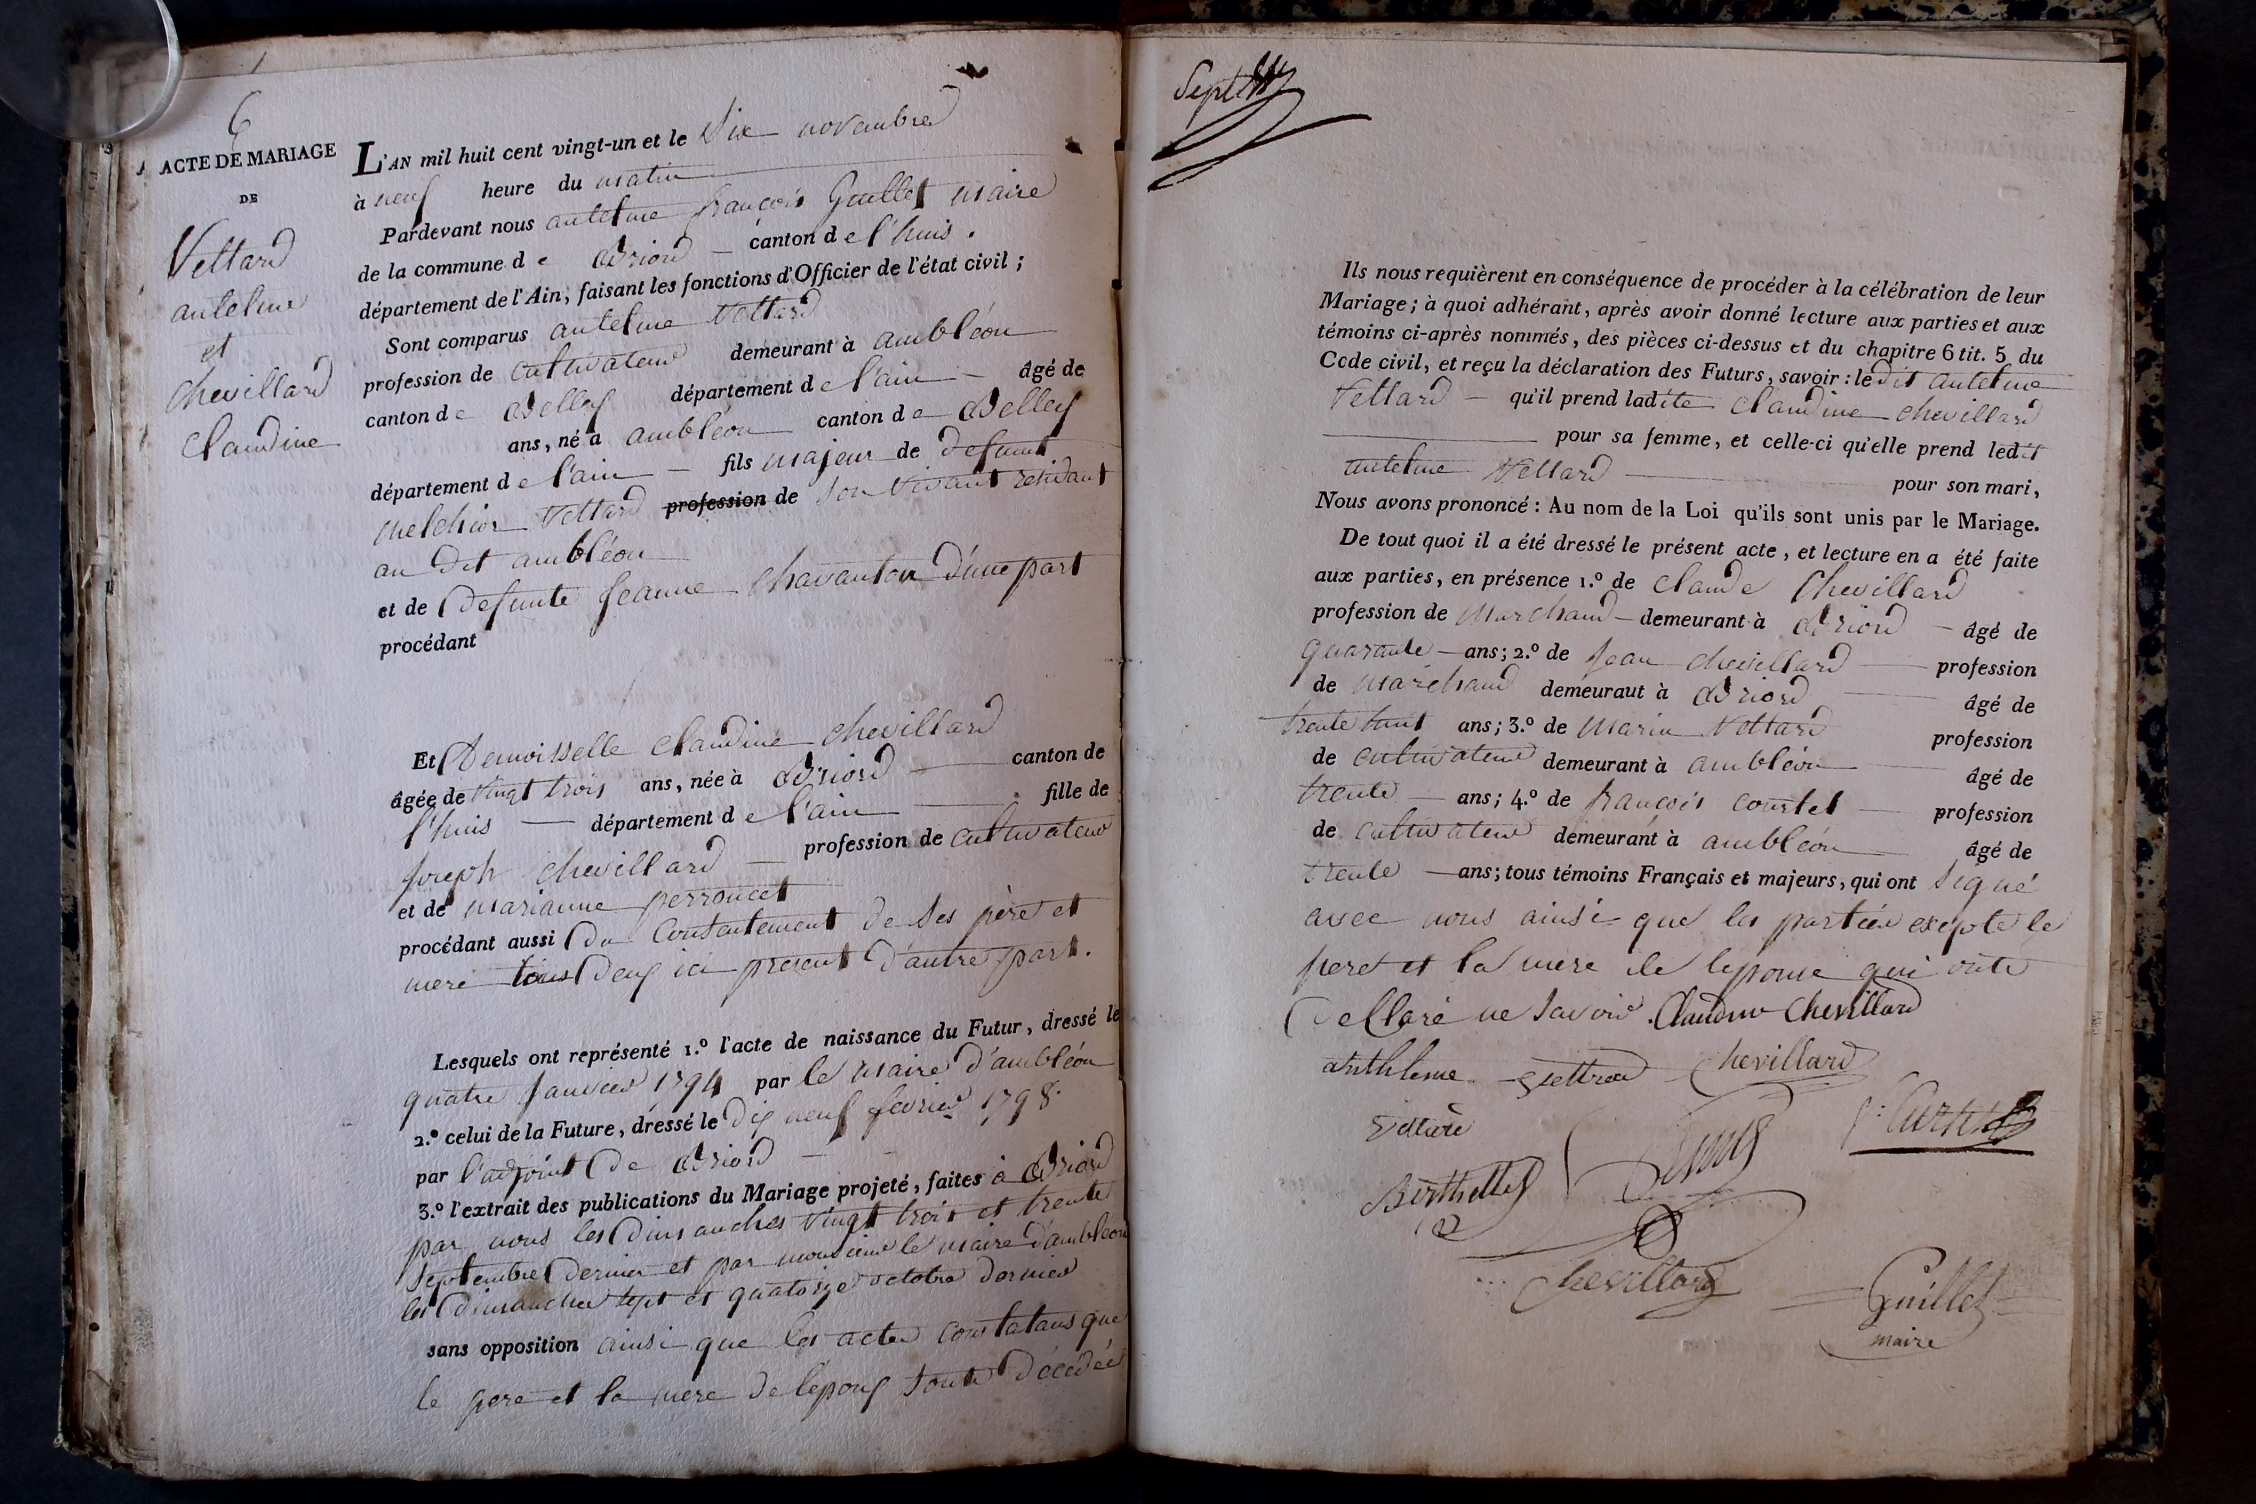 6
ACTE DE MARIAGE
DE
Vettard
antelme
et
chevillard
Claudine
L'AN mil huit cent vingt-un et le Six novembre
à neuf heure du matin
Pardevant nous antelme françois Guillet maire
de la commune d e Briord canton d e l'huis.
département de l'Ain, faisant les fonctions d'Officier de l'état civil ;
Sont comparus antelme Vettard
profession de cultivateur demeurant à ambléon
canton d e Belley département d e l'ain âgé de
ans, né à ambléon canton d e Belley
département d e l'ain fils majeur de defunt
melchior Vettard profession de son vivant residant
au dit ambléon
et de defunte jeanne Chavanton d'une part
procédant
Et Demoisselle Claudine chevillard
âgée de vingt trois ans, née à Briord canton de
l'huis département d e l'ain fille de
joseph chevillard profession de cultivateur
et de marianne perroncet
procédant aussi du consentement de ses père et
mere tous deux ici present d'autre part.
Lesquels ont représenté 1.º l'acte de naissance du Futur, dressé le
quatre janvier 1794 par le maire d'ambléon
2.º celui de la Future, dressé le dix neuf fevrier 1798
par l'adjoint de Briord
3.º l'extrait des publications du Mariage projeté, faites à Briord
par nous les dimanches vingt trois et trente
septembre dernier et par monsieur le maire d'ambleon
les dimanches sept et quatorze octobre dernier
sans opposition ainsi que les actes constatans que
le pere et la mere de l'epoux sont décédés
Sept
Ils nous requièrent en conséquence de procéder à la célébration de leur
Mariage ; à quoi adhérant, après avoir donné lecture aux parties et aux
témoins ci-après nommés, des pièces ci-dessus et du chapitre 6 tit. 5 du
Code civil, et reçu la déclaration des Futurs, savoir : le dit antelme
Vettard qu'il prend ladite Claudine chevillard
pour sa femme, et celle-ci qu'elle prend ledit
antelme Vettard pour son mari,
Nous avons prononcé : Au nom de la Loi qu'ils sont unis par le Mariage.
De tout quoi il a été dressé le présent acte, et lecture en a été faite
aux parties, en présence 1.º de claude Chevillard
profession de marchand demeurant à Briord âgé de
quarante ans ; 2.º de jean chevillard profession
de marchand demeuraut à Briord âgé de
trente huit ans ; 3.º de marin Vettard profession
de cultivateur demeurant à ambléon âgé de
trente ans ; 4.º de françois courtet profession
de cultivateur demeurant à ambléon âgé de
trente ans ; tous témoins Français et majeurs, qui ont signé
avec nous ainsi que les parties exepte le
pere et la mere de lepouse qui onte
dellaré ne savoir. Claudine Chevillard
anthleme vettrad Chevillard
Berthellet
Chevillard
Guillet
maire